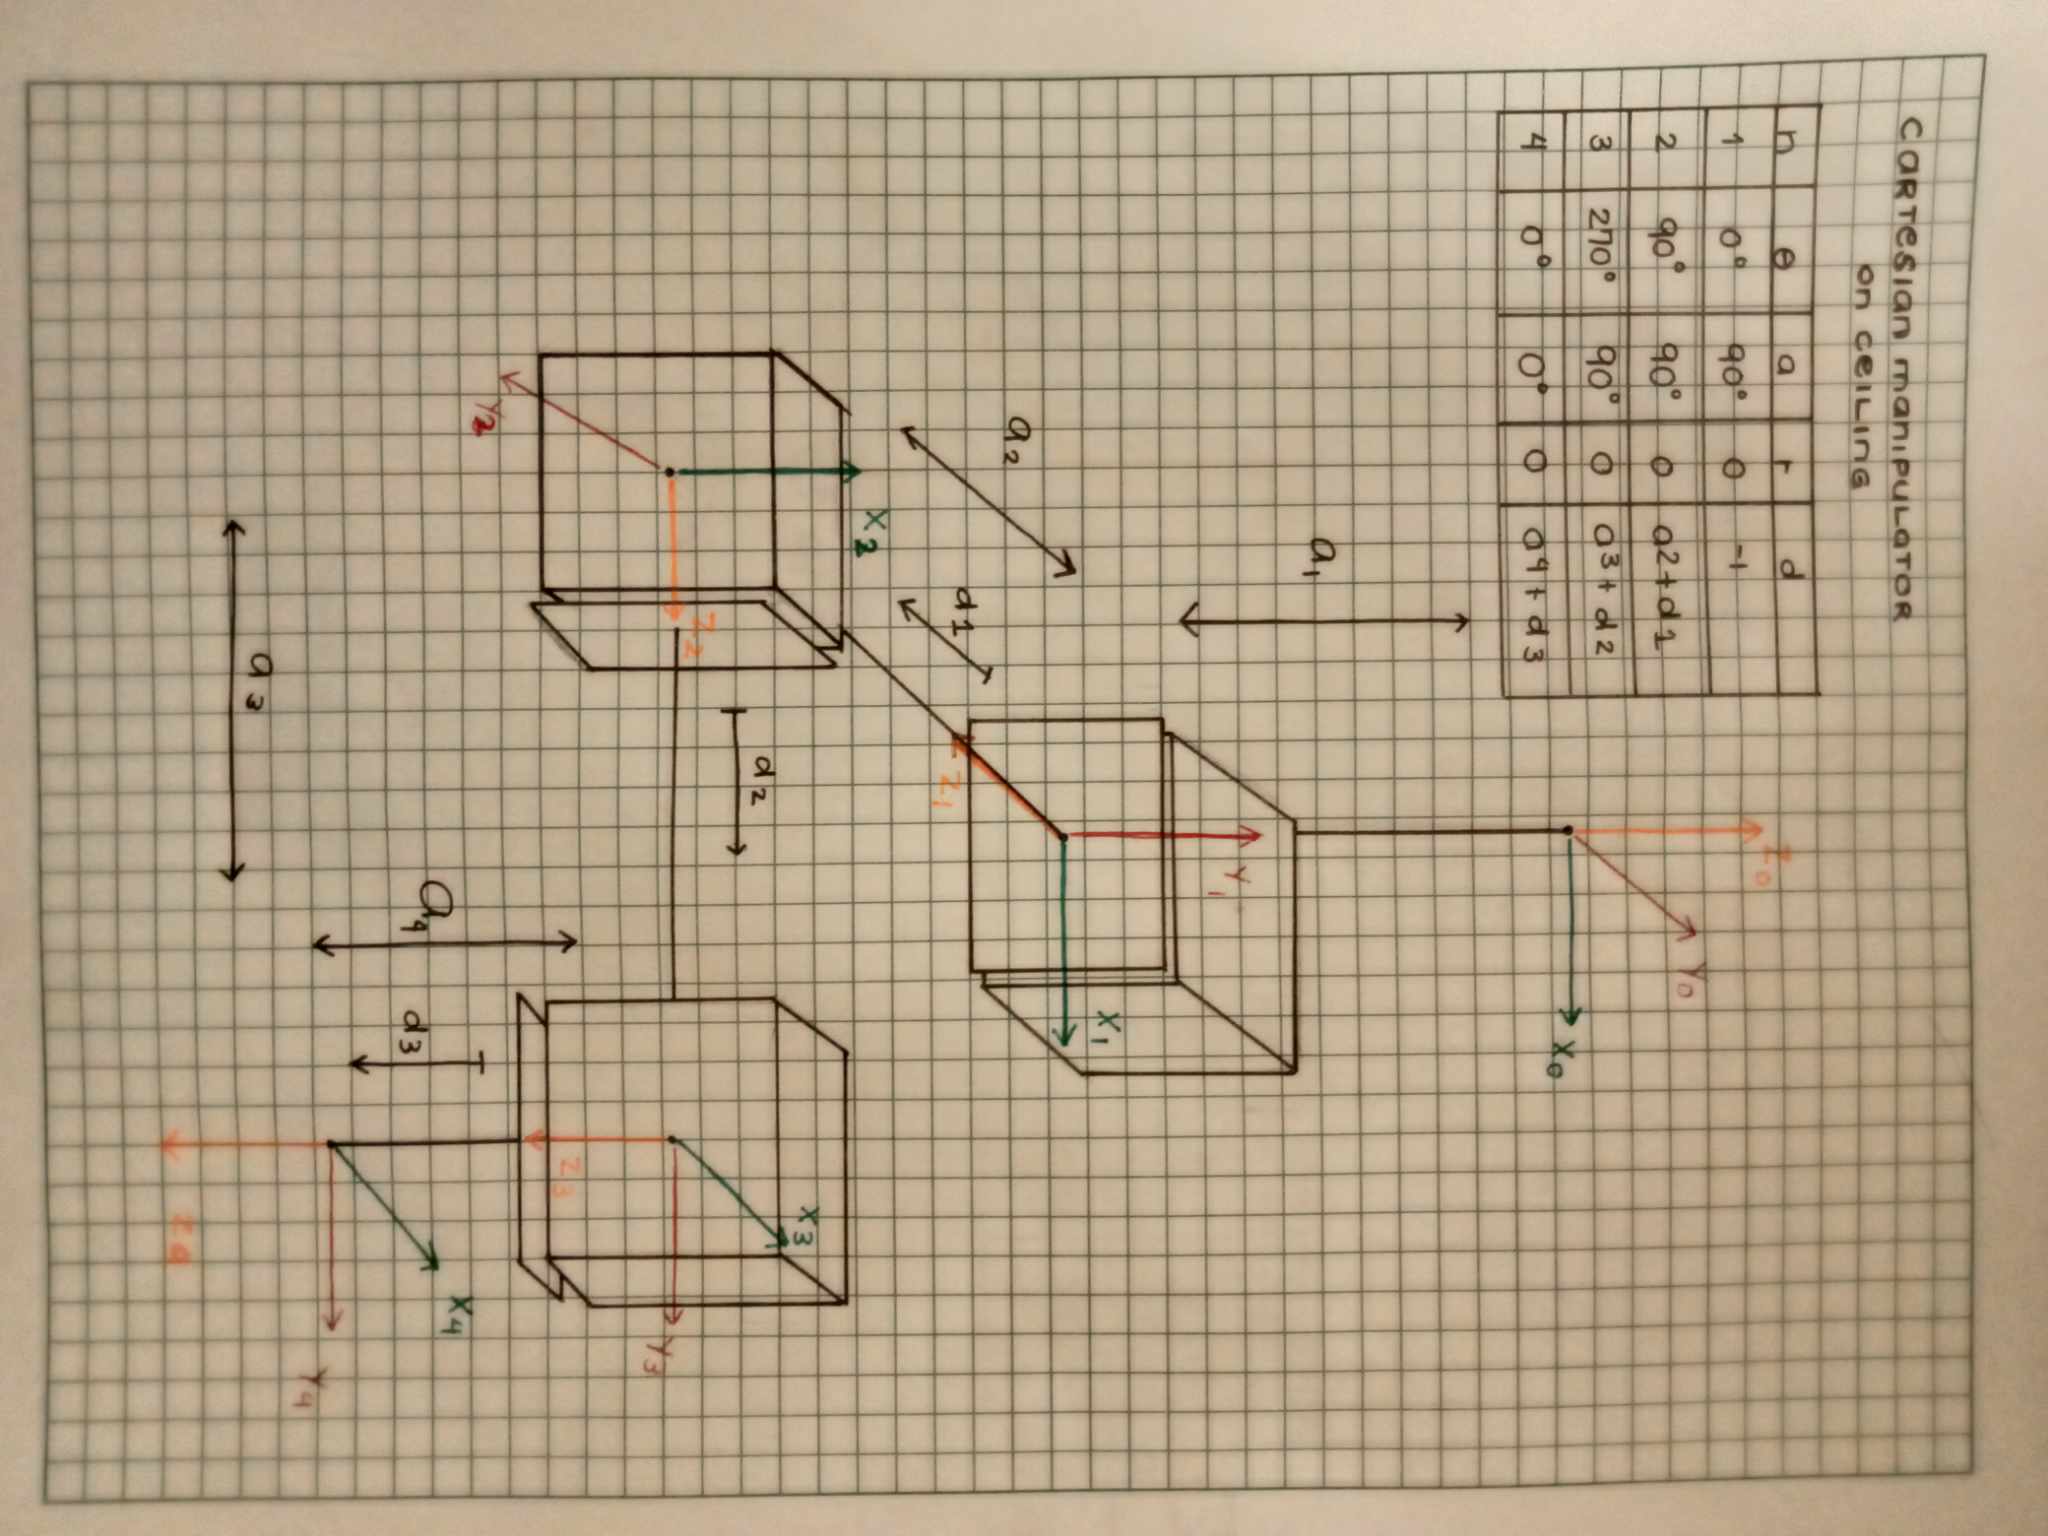 CARTESIAN MANIPULATOR
ON CEILING
n θ a r d
1 0° 90° 0 -1
2 90° 90° 0 a2+d1
3 270° 90° 0 a3+d2
4 0° 0° 0 a4+d3
Z0
Y0
X0
a1
Y1
X1
a2
d1
Z1
X2
X3
d2
Z2
Y3
Z3
Y2
X4
a4
d3
Y4
a3
Z4